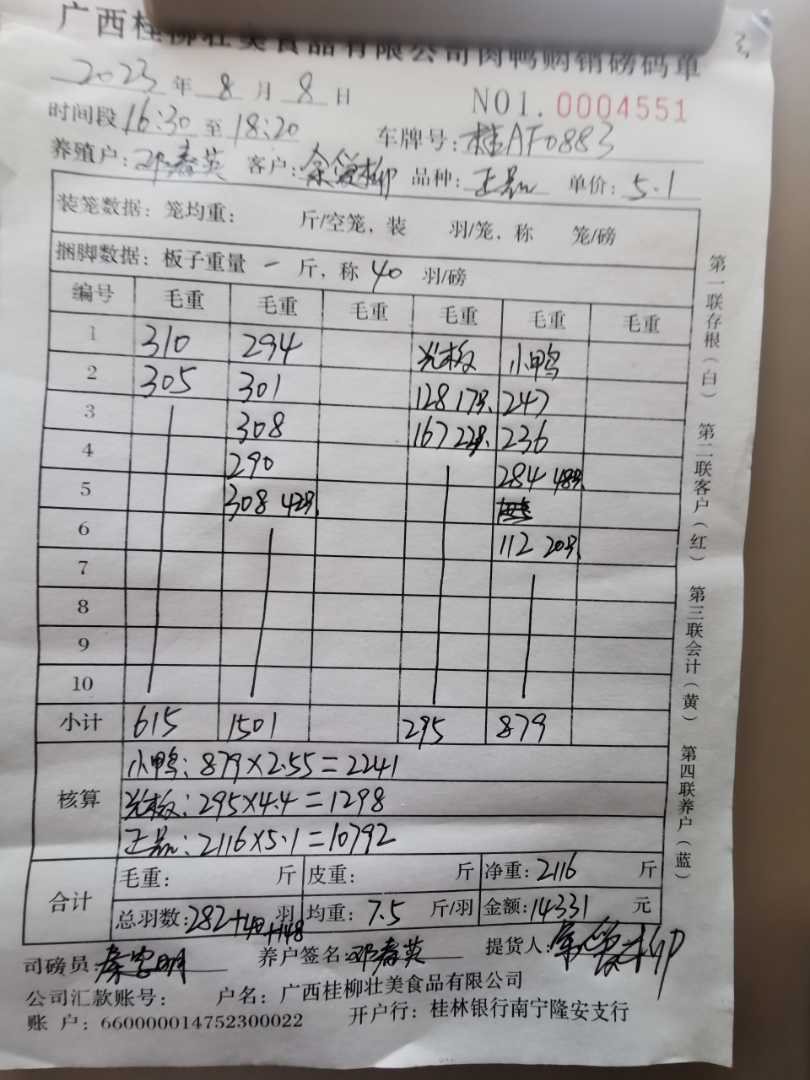 广西桂柳壮美食品有限公司肉鸭购销磅码单
2023年8月8日 NO1.0004551
时间段16:30至18:20 车牌号:桂AF0883
养殖户:邓春英 客户: 品种:正品 单价:5.1
装笼数据:笼均重: 斤/空笼,装 羽/笼,称 笼/磅
捆脚数据:板子重量 一 斤,称40羽/磅
编号 毛重 毛重 毛重 毛重 毛重 毛重
1 310 294 光板 小鸭
2 305 301 128 17羽 247
3 308 167 22羽 236
4 290 284 48羽
5 308 42羽
6 112 20羽
7
8
9
10
小计 615 1501 295 879
核算
小鸭:879×2.55=2241
光板:295×4.4=1298
正品:2116×5.1=10792
合计
毛重: 斤 皮重: 斤 净重:2116 斤
总羽数:282+40+148羽 均重:7.5 斤/羽 金额:14331 元
司磅员: 养户签名:邓春英 提货人:
公司汇款账号: 户名:广西桂柳壮美食品有限公司
账 户:660000014752300022 开户行:桂林银行南宁隆安支行
第一联存根(白) 第二联客户(红) 第三联会计(黄) 第四联养户(蓝)